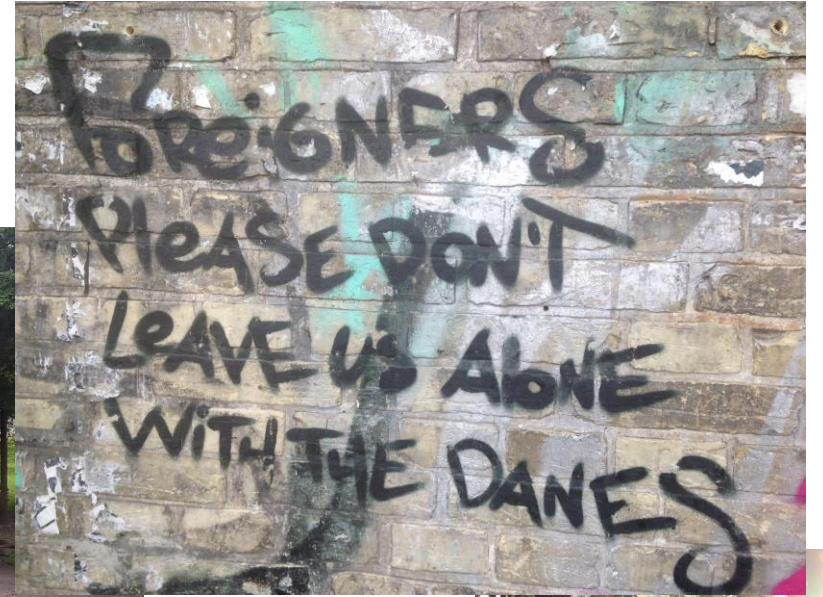 FOReiGNERS
PleASE DON'T
LeAVE US AloNE
WiTH THE DANES